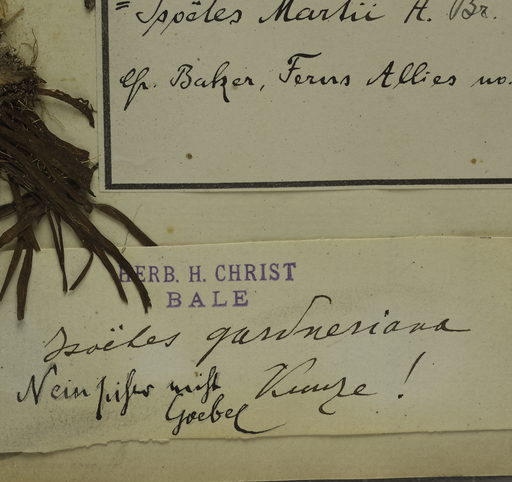 = Isoëtes Martii A. Br.
cfr. Baker, Ferns Allies no.
HERB. H. CHRIST
BALE
Isoëtes gardneriana
Kunze!
Nein sicher nicht
Goebel